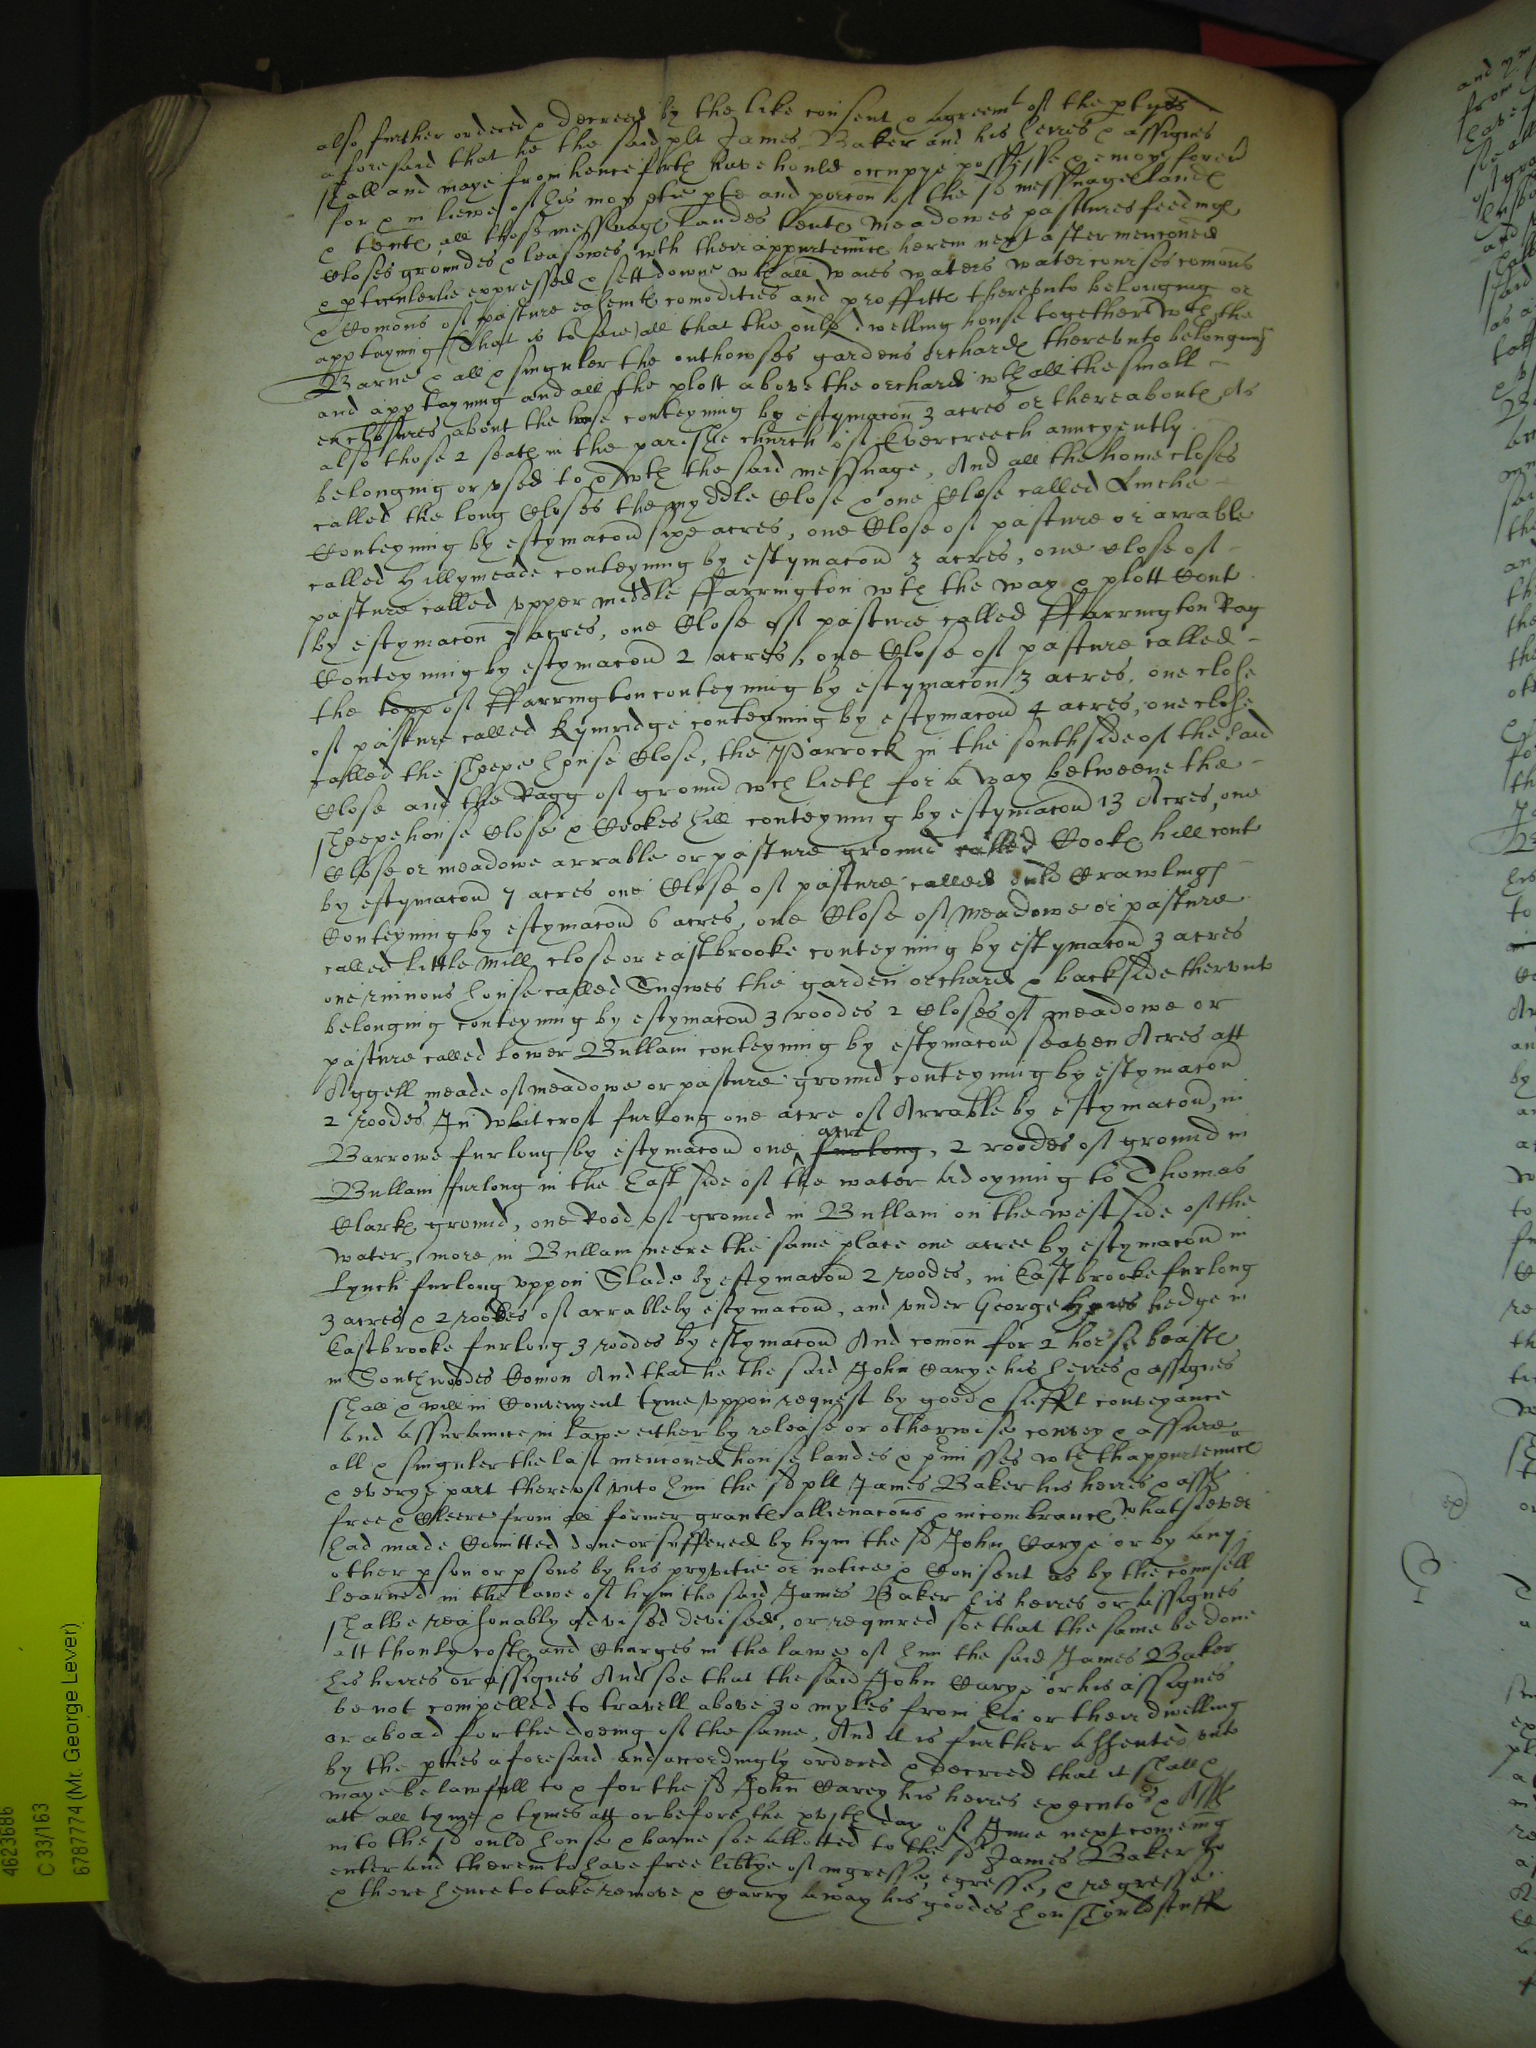 also further ordered & decreed by the like consent & agreemt of the ptyes
aforesaid that he the said plt James Baker and his heires & assignes
shall and maye from henceforth have hould occupye possesse & enioye forever
for & in liewe of his moyetie pte and porcon of the sd messuages landes
& tents all those messuages landes tents meadowes pastures feedings
Closes groundes & leasowes wth their appurtenncs herein next after menconed
& pticulerlie expressed & sett downe wth all waies waters watercourses comons
& Comons of pasture easemts comodities and proffitts thereunto belonging or
apptayning (that is to saie) all that the ould dwelling house together wth the
Barne & all & singuler the outhowses gardens orchards thereunto belonging
and apptayning and all the plott above the orchard wth all the small
enclosures about the house conteyning by estymacon 3 acres or thereabouts As
also those 2 seats in the parishe church of Evercreech auncyently
belonging or used to & wth the said messuage, And all the home closes
called the long Closes the myddle Close & one Close called Linche
Conteyning by estymacon sixe acres, one Close of pasture or arrable
called Hillymeade conteyning by estymacon 3 acres, one close of
pasture called upper middle ffarrington wth the way & plott Cont
by estymacon 7 acres, one Close of pasture called ffarrington Rag
Conteyning by estymacon 2 acres, one Close of pasture called
the topp of ffarrington conteyning by estymacon 3 acres, one close
of pasture called Kymridge conteyning by estymacon 4 acres, one close
called the sheepe house Close, the Parrock in the south side of the said
Close and the Ragg of ground wch lieth for a way betweene the
sheepehouse Close & Cookes hill conteyning by estymacon 13 Acres, one
Close or meadowe arrable or pasture ground called Cooks hill cont
by estymacon 7 acres one Close of pasture called ould Crawlings
Conteyning by estymacon 6 acres, one Close of meadowe or pasture
called little Mill close or eastbrooke conteyning by estymacon 3 acres
one ruinous house called Snowes the garden orchard & backside therunto
belonging conteyning by estymacon 3 roodes 2 Closes of meadowe or
pasture called lower Bullam conteyning by estymacon seaven Acres att
Aggell meade of meadowe or pasture ground conteyning by estymacon
2 roodes In Whitcrost furlong one acre of Arrable by estymacon, in
Barrowe furlong by estymacon one acre furlong, 2 roodes of ground in
Bullam furlong in the East side of the water adoyning to Thomas
Clarks ground, one Rood of ground in Bullam on the west side of the
water, more in Bullam neere the same place one acree by estymacon in
Lynch furlong uppon Slade by estymacon 2 roodes, in Eastbrooke furlong
3 acres & 2 roodes of arrable by estymacon, and under George hedge in
Eastbrooke furlong 3 roodes by estymacon And comon for 2 horse beasts
in Southwoodes Comon And that he the said John Carye his heires & assignes
shall & will in Convenyent tyme uppon request by good & suffit conveyance
and assurance in lawe either by release or otherwise convey & assure
all & singuler the last menconed house landes & pmisses wth thappurtenncs
& everye part thereof unto him the sd plt James Baker his heires & asss
free & Cleere from all former grants allienacons & incombrancs whatsoever
had made Comitted done or suffered by hym the sd John Carye or by any
other pson or psons by his pryvitie or notice & Consent as by the counsell
learned in the lawe of hym the said James Baker his heires or Assignes
shalbe reasonably advised devised, or required soe that the same be done
att thonly costs and Charges in the lawe of him the said James Baker
his heires or assignes And soe that the said John Carye or his assignes
be not compelled to travell above 30 myles from his or their dwelling
or aboad for the doeing of the same, And it is further assented unto
by the pties aforesaid and accordingly ordered & decreed that it shall &
maye be lawfull to & for the sd John Carey his heires executors & Asss
att all tyme & tymes att or before the day of June next coming
into the sd ould house & barne soe allotted to the sd James Baker to
enter and therein to have free libtye of ingresse, egresse, & regresse
& there hence to take remove & Carry away his goodes houshould stuffe
4623686
C 33/163
6787774 (Mr. George Lever)